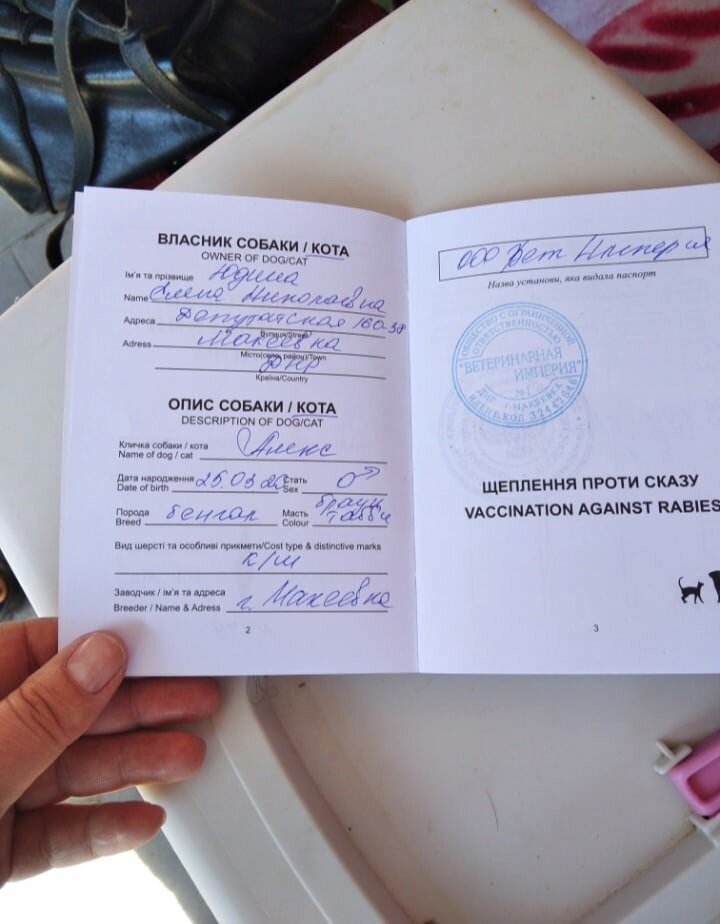 ВЛАСНИК СОБАКИ / КОТА
OWNER OF DOG/CAT
Ім'я та прізвище Юдина
Name Елена Николаевна
Адреса Депутатская 160-38
Вулиця/Street
Adress Макеевка
Місто(село, район)/Town
ДНР
Країна/Country
ОПИС СОБАКИ / КОТА
DESCRIPTION OF DOG/CAT
Кличка собаки / кота
Name of dog / cat Алекс
Дата народження Стать
Date of birth 25.03 Sex ♂
Порода Масть браун
Breed бенгал Colour табби
Вид шерсті та особливі прикмети/Cost type & distinctive marks
к/ш
Заводчик / ім'я та адреса
Breeder / Name & Adress г. Макеевка
2
ООО Вет Империя
Назва установи, яка видала паспорт
ОБЩЕСТВО С ОГРАНИЧЕННОЙ
ОТВЕТСТВЕННОСТЬЮ
"ВЕТЕРИНАРНАЯ
ИМПЕРИЯ"
№1
ДНР г. МАКЕЕВКА
ЩЕПЛЕННЯ ПРОТИ СКАЗУ
VACCINATION AGAINST RABIES
3